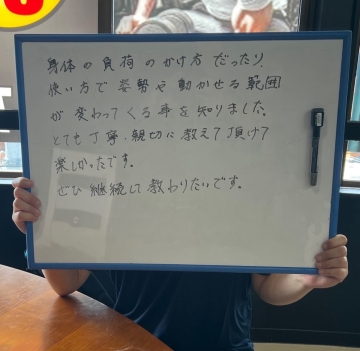 身体の負荷のかけ方だったり、
使い方で姿勢や動かせる範囲
が変わってくる事を知りました。
とても丁寧、親切に教えて頂けて
楽しかったです。
ぜひ継続して教わりたいです。